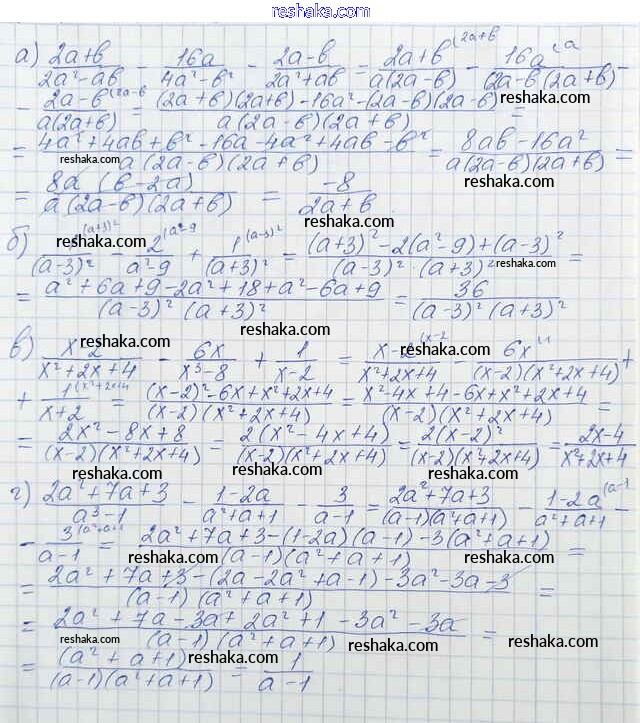 reshaka.com
а) (2a+b)/(2a²-ab) - 16a/(4a²-b²) - (2a-b)/(2a²+ab) = (2a+b)^(2a+b)/(a(2a-b)) - 16a^(a)/((2a-b)(2a+b)) -
- (2a-b)^(2a-b)/(a(2a+b)) = ((2a+b)(2a+b)-16a²-(2a-b)(2a-b))/(a(2a-b)(2a+b)) =
= (4a²+4ab+b²-16a-4a²+4ab-b²)/(a(2a-b)(2a+b)) = (8ab-16a²)/(a(2a-b)(2a+b)) =
reshaka.com reshaka.com reshaka.com
= (8a(b-2a))/(a(2a-b)(2a+b)) = -8/(2a+b)
reshaka.com reshaka.com
б) 1^((a+3)²)/(a-3)² - 2^(a²-9)/(a²-9) + 1^((a-3)²)/(a+3)² = ((a+3)²-2(a²-9)+(a-3)²)/((a-3)²·(a+3)²) =
reshaka.com reshaka.com
= (a²+6a+9-2a²+18+a²-6a+9)/((a-3)²(a+3)²) = 36/((a-3)²(a+3)²)
reshaka.com reshaka.com
в) (x-2)/(x²+2x+4) - 6x/(x³-8) + 1/(x-2) = (x-2)^(x-2)/(x²+2x+4) - 6x^(1)/((x-2)(x²+2x+4)) +
reshaka.com reshaka.com
+ 1^(x²+2x+4)/(x+2) = ((x-2)²-6x+x²+2x+4)/((x-2)(x²+2x+4)) = (x²-4x+4-6x+x²+2x+4)/((x-2)(x²+2x+4)) =
= (2x²-8x+8)/((x-2)(x²+2x+4)) = (2(x²-4x+4))/((x-2)(x²+2x+4)) = (2(x-2)²)/((x-2)(x²+2x+4)) = (2x-4)/(x²+2x+4)
reshaka.com reshaka.com reshaka.com
г) (2a²+7a+3)/(a³-1) - (1-2a)/(a²+a+1) - 3/(a-1) = (2a²+7a+3)/((a-1)(a²+a+1)) - (1-2a)^(a-1)/(a²+a+1) -
- 3^(a²+a+1)/(a-1) = (2a²+7a+3-(1-2a)(a-1)-3(a²+a+1))/((a-1)(a²+a+1)) =
reshaka.com reshaka.com
= (2a²+7a+3-(2a-2a²+a-1)-3a²-3a-3)/((a-1)(a²+a+1)) =
= (2a²+7a-3a+2a²+1-3a²-3a)/((a-1)(a²+a+1)) =
reshaka.com reshaka.com reshaka.com
= (a²+a+1)/((a-1)(a²+a+1)) = 1/(a-1)
reshaka.com